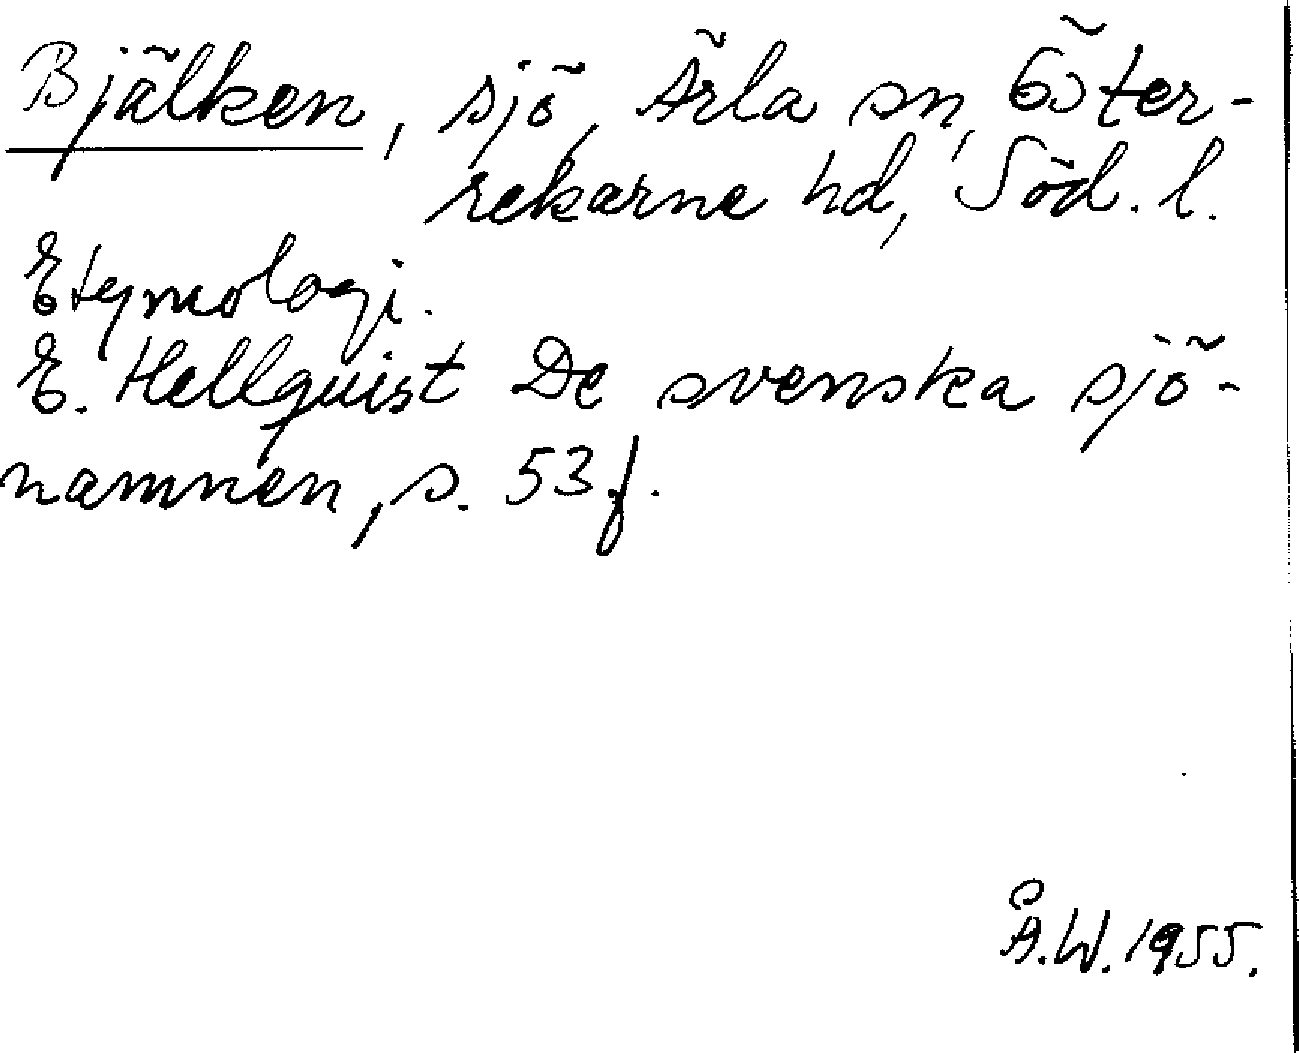 Bjälken, sjö, Ärla sn, Öster-
rekarne hd, Söd. l.
Etymologi.
E. Hellquist De svenska sjö-
namnen, s. 53 f.
Å.W. 1955.